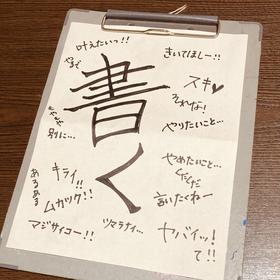 叶えたいっ!!
きいてほしー!!
やるで
スキ♥
それな!
書く
やりたいこと…
別に…
やめたいこと…
キライ!!
ぐだぐだ
あるある
ムカツク!!
言いたくねー
マジサイコー!!
ツマラナイ…
ヤバイッ!
て!!